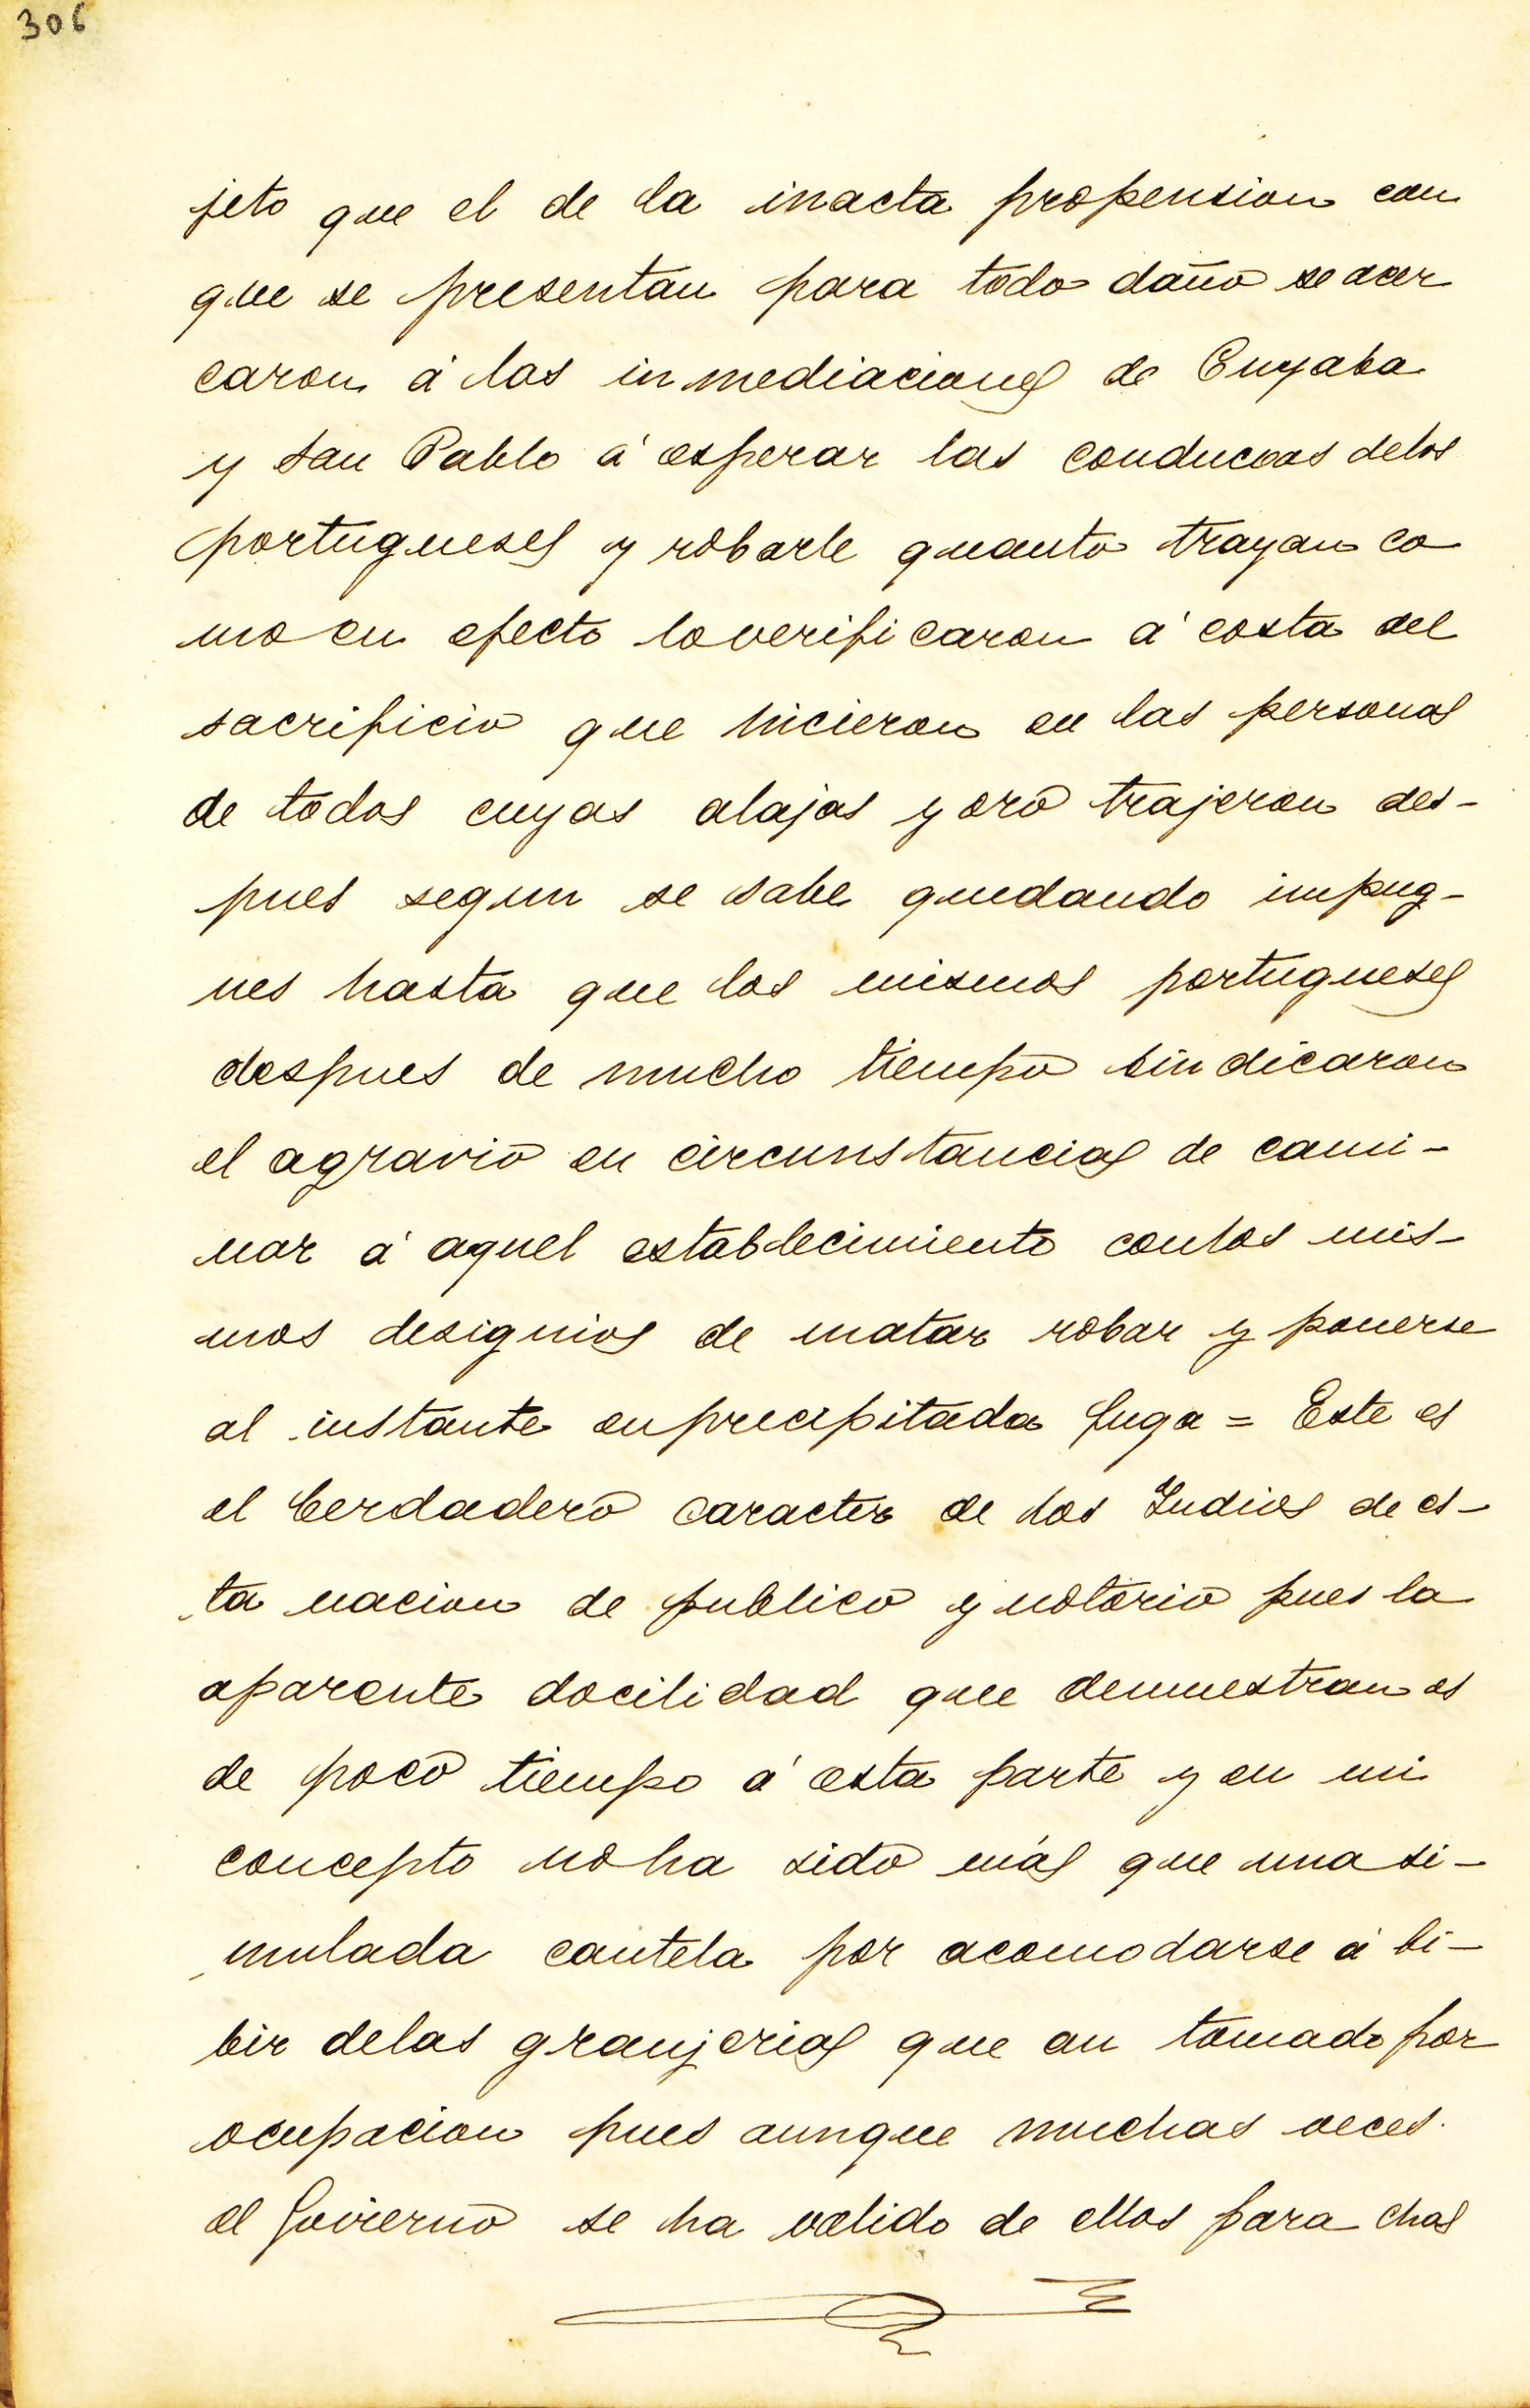 306
jeto que el de la inacta propension con
que se presentan para todo daño se acer
caron á las inmediaciones de Cuyaba
y San Pablo á esperar las conduccas delos
portugueses y robarle quanto trayan co
mo en efecto loverificaron á costa del
sacrificio que hicieron en las personas
de todos cuyas alajas y oro trajeron des-
pues segun se sabe quedando impug-
nes hasta que los mismos portugueses
despues de mucho tiempo sindicaron
el agravio en circunstancias de cami-
nar á aquel establecimiento conlos mis-
mos designios de matar robar y ponerse
al instante enprecipitada fuga = Este es
el berdadero caracter de los Indios de es-
ta nacion de publico y notorio pues la
aparente docilidad que demuestran es
de poco tiempo á esta parte y en mi
concepto noha sido más que una si-
mulada cautela por acomodarse á bi-
bir delas granjerias que an tomado por
ocupacion pues aunque muchas veces
el Govierno se ha valido de ellos para chas